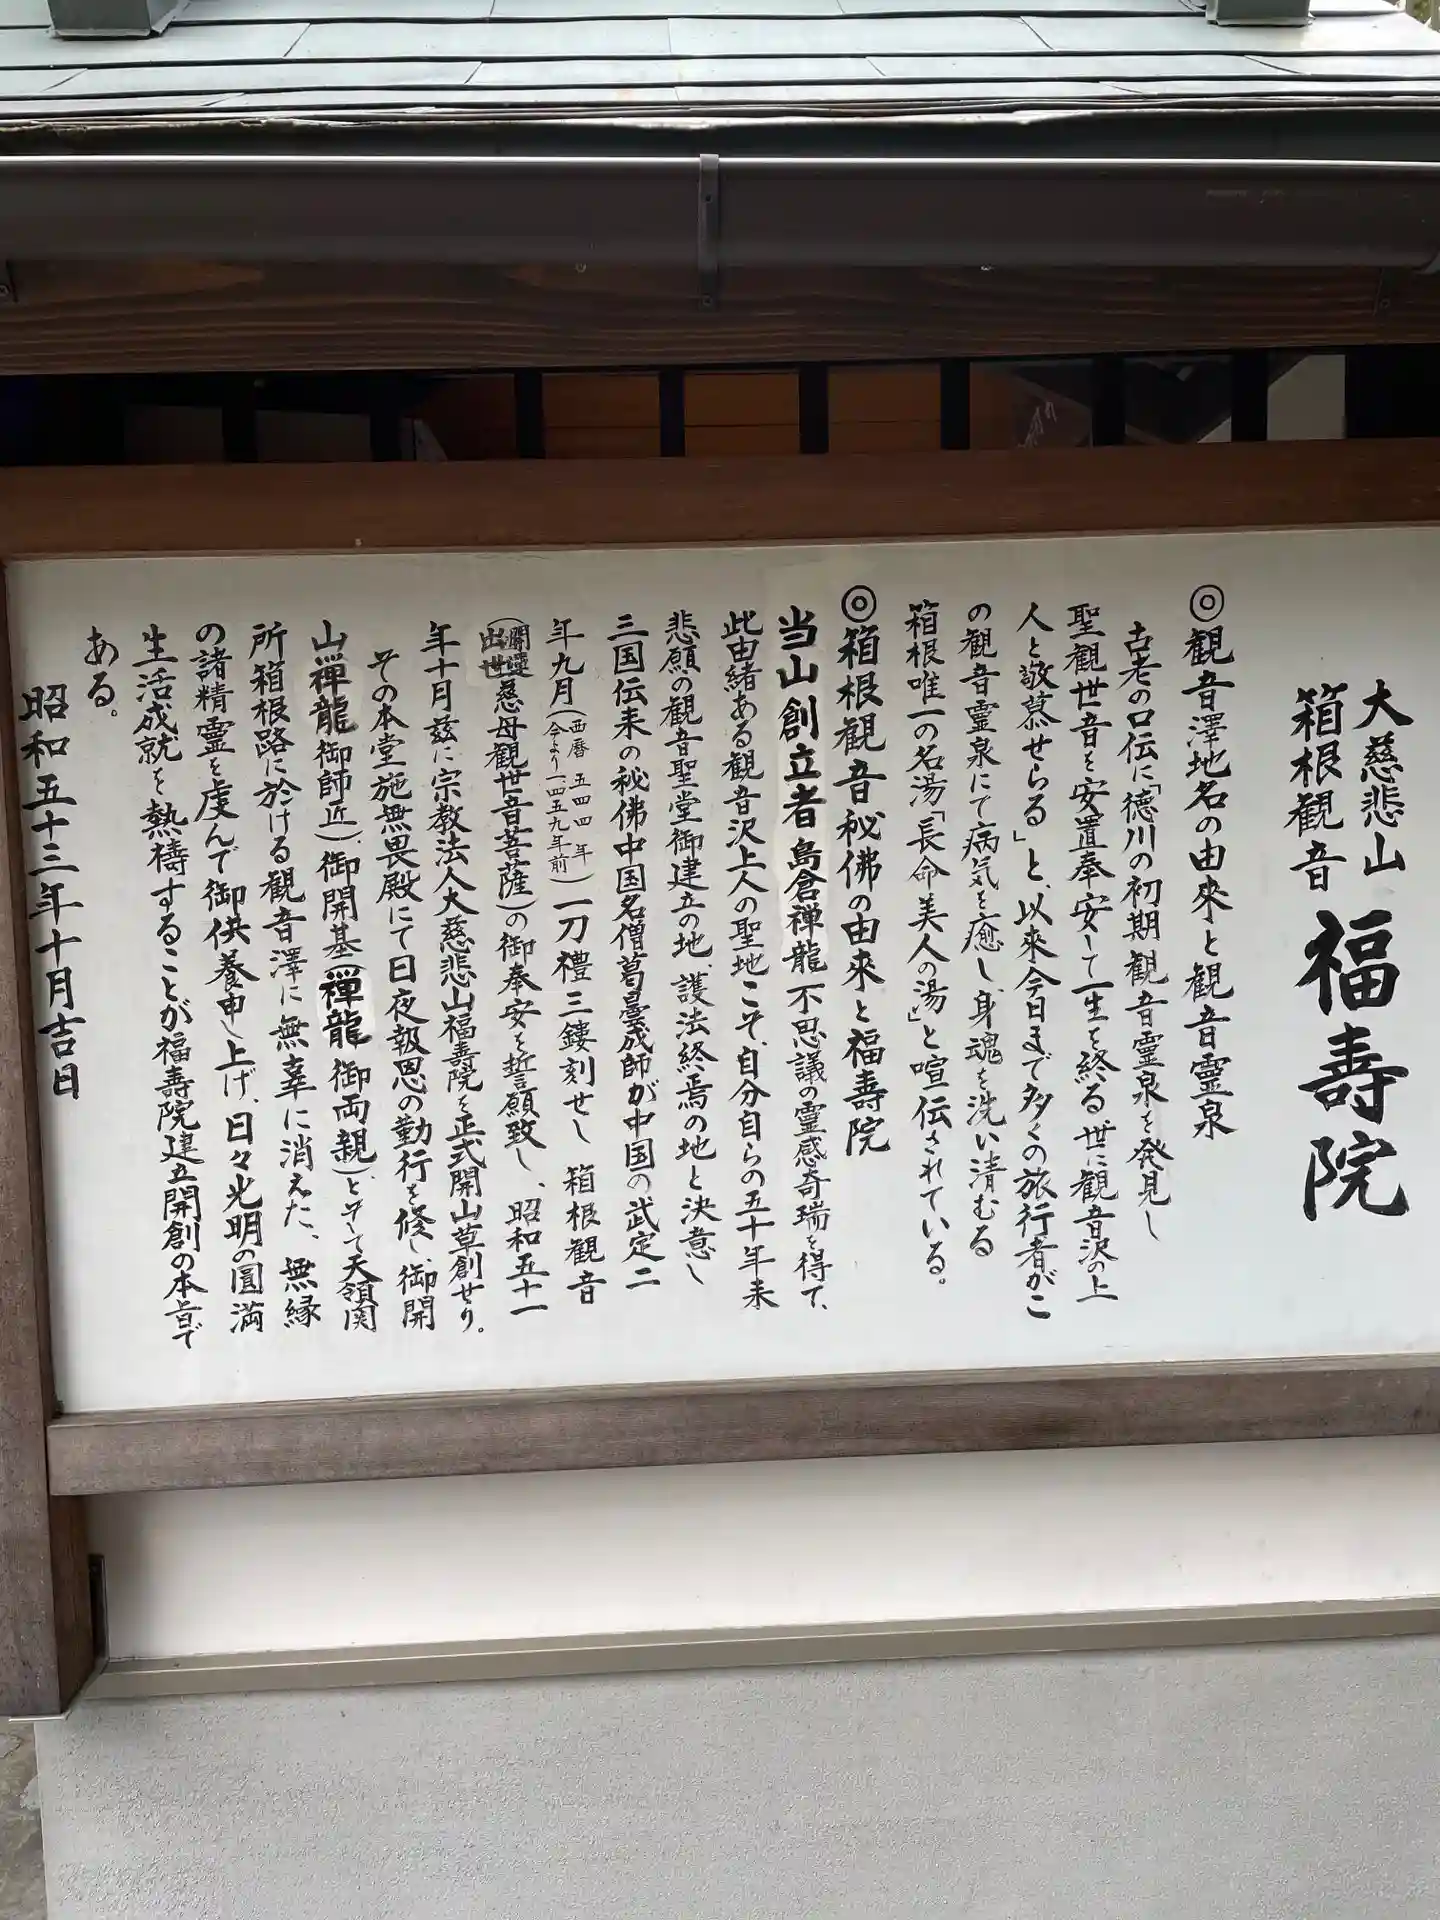 大慈悲山
箱根観音
福寿院
◎観音澤地名の由来と観音靈泉
古老の口伝に「徳川の初期観音靈泉を発見し
聖観世音を安置奉安して一生を終る、世に観音沢の上
人と敬慕せらる」と、以來今日まで多くの旅行者がこ
の観音靈泉にて病気を癒し、身魂を洗い清むる
箱根唯一の名湯「長命美人の湯」と喧伝されている。
◎箱根観音秘佛の由來と福寿院
当山創立者島倉禅龍不思議の靈感奇瑞を得て、
此由緒ある観音沢上人の聖地こそ、自分自らの五十年来
悲願の観音聖堂御建立の地、護法終焉の地と決意し
三国伝来の秘佛中国名僧葛曇成師が中国の武定二
年九月(西暦 五四四年
今より一、四五九年前)一刀禮三鏤刻せし 箱根観音
(開運
出世慈母観世音菩薩)の御奉安を誓願致し、昭和五十一
年十月茲に宗教法人大慈悲山福壽院を正式開山草創せり。
その本堂施無畏殿にて日夜報恩の勤行を修し、御開
山禅龍御師匠)、御開基(禅龍御両親)として天領関
所箱根路に於ける観音澤に無辜に消えた、無縁
の諸精靈を虔んで御供養申し上げ、日々光明の圓満
生活成就を熱禱することが福壽院建立開創の本旨で
ある。
昭和五十三年十月吉日